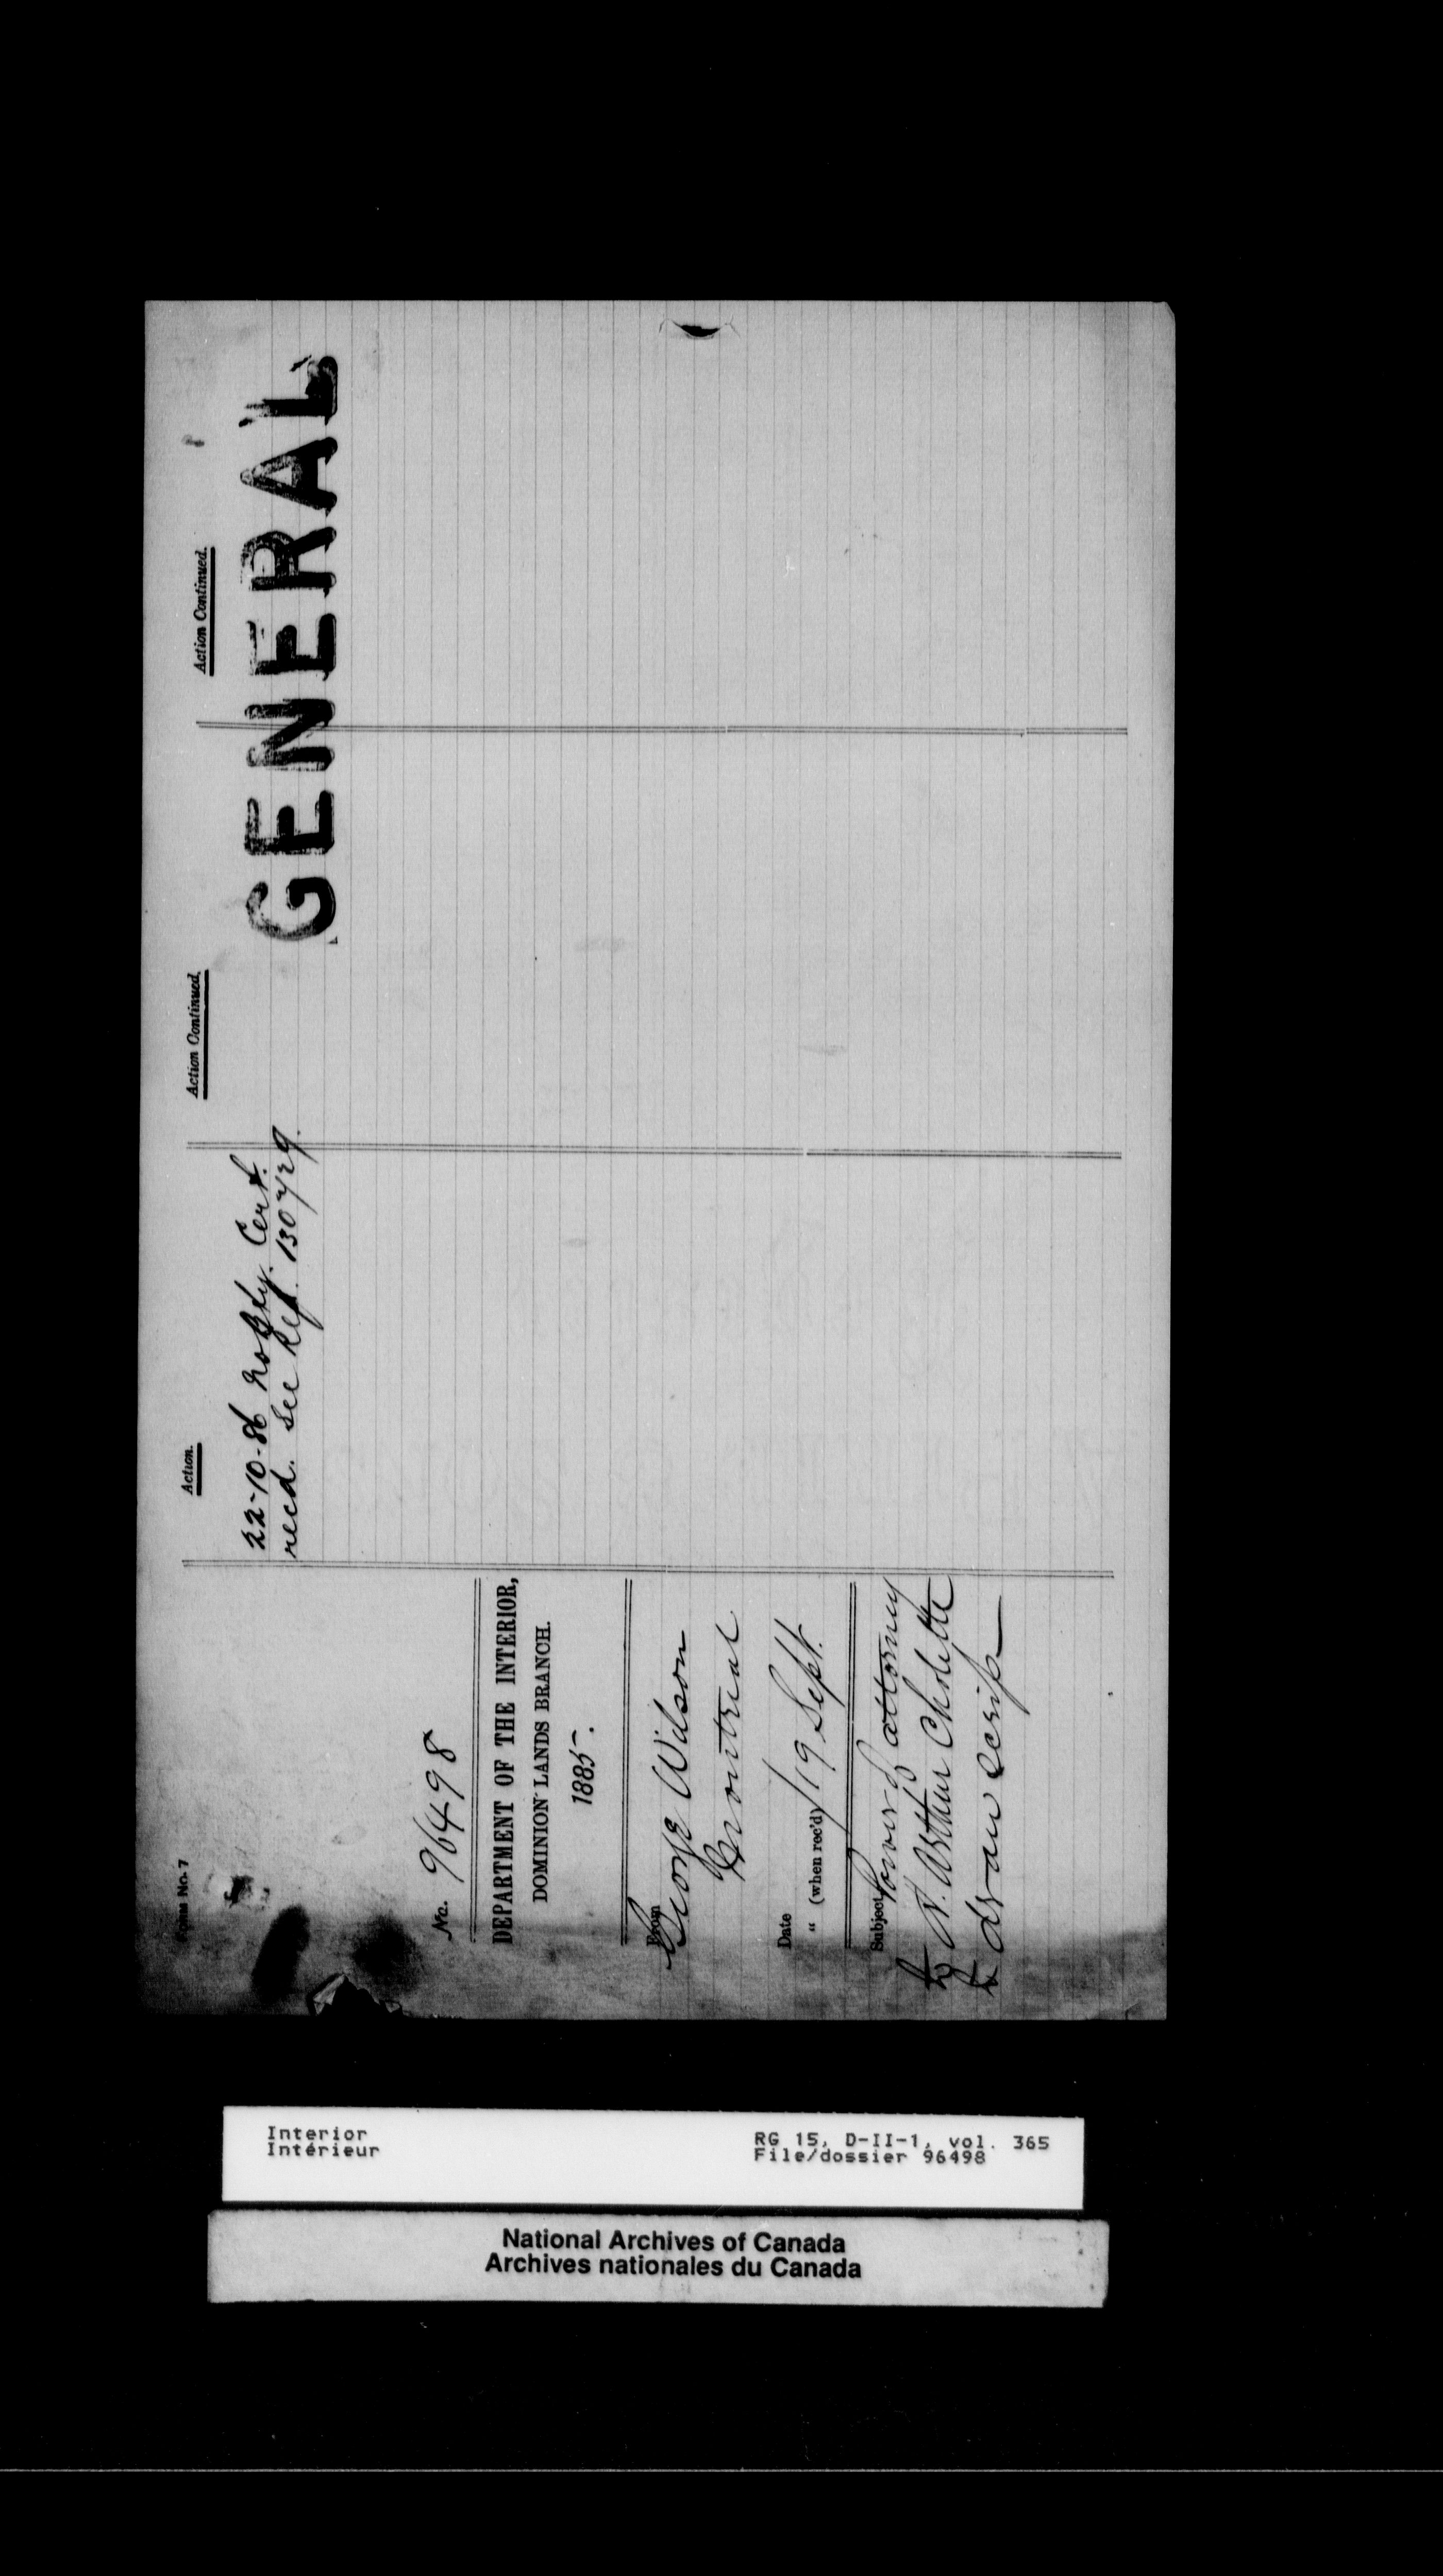 Form No. 7
No. 96498
DEPARTMENT OF THE INTERIOR,
DOMINION LANDS BRANCH.
1885.
From George Wilson
Montreal
Date
" (when rec'd) 19 Sept.
Subject, Power of attorney
to A. Arthur Cholette
to draw scrip
Action.
22-10-86 No Bty. Cert.
recd. See Ref. 130729.
Action Continued.
Action Continued.
GENERAL
Interior
Intérieur
RG 15, D-II-1, vol. 365
File/dossier 96498
National Archives of Canada
Archives nationales du Canada